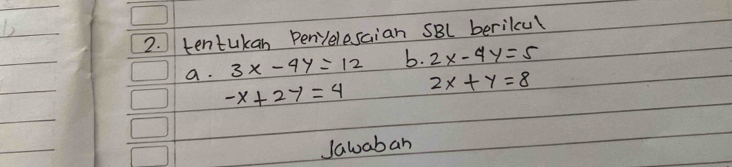 2. tentukan Penyelesaian SBL berikut
a. 3x - 4y = 12 b. 2x - 4y = 5
-x + 2y = 4 2x + y = 8
Jawaban